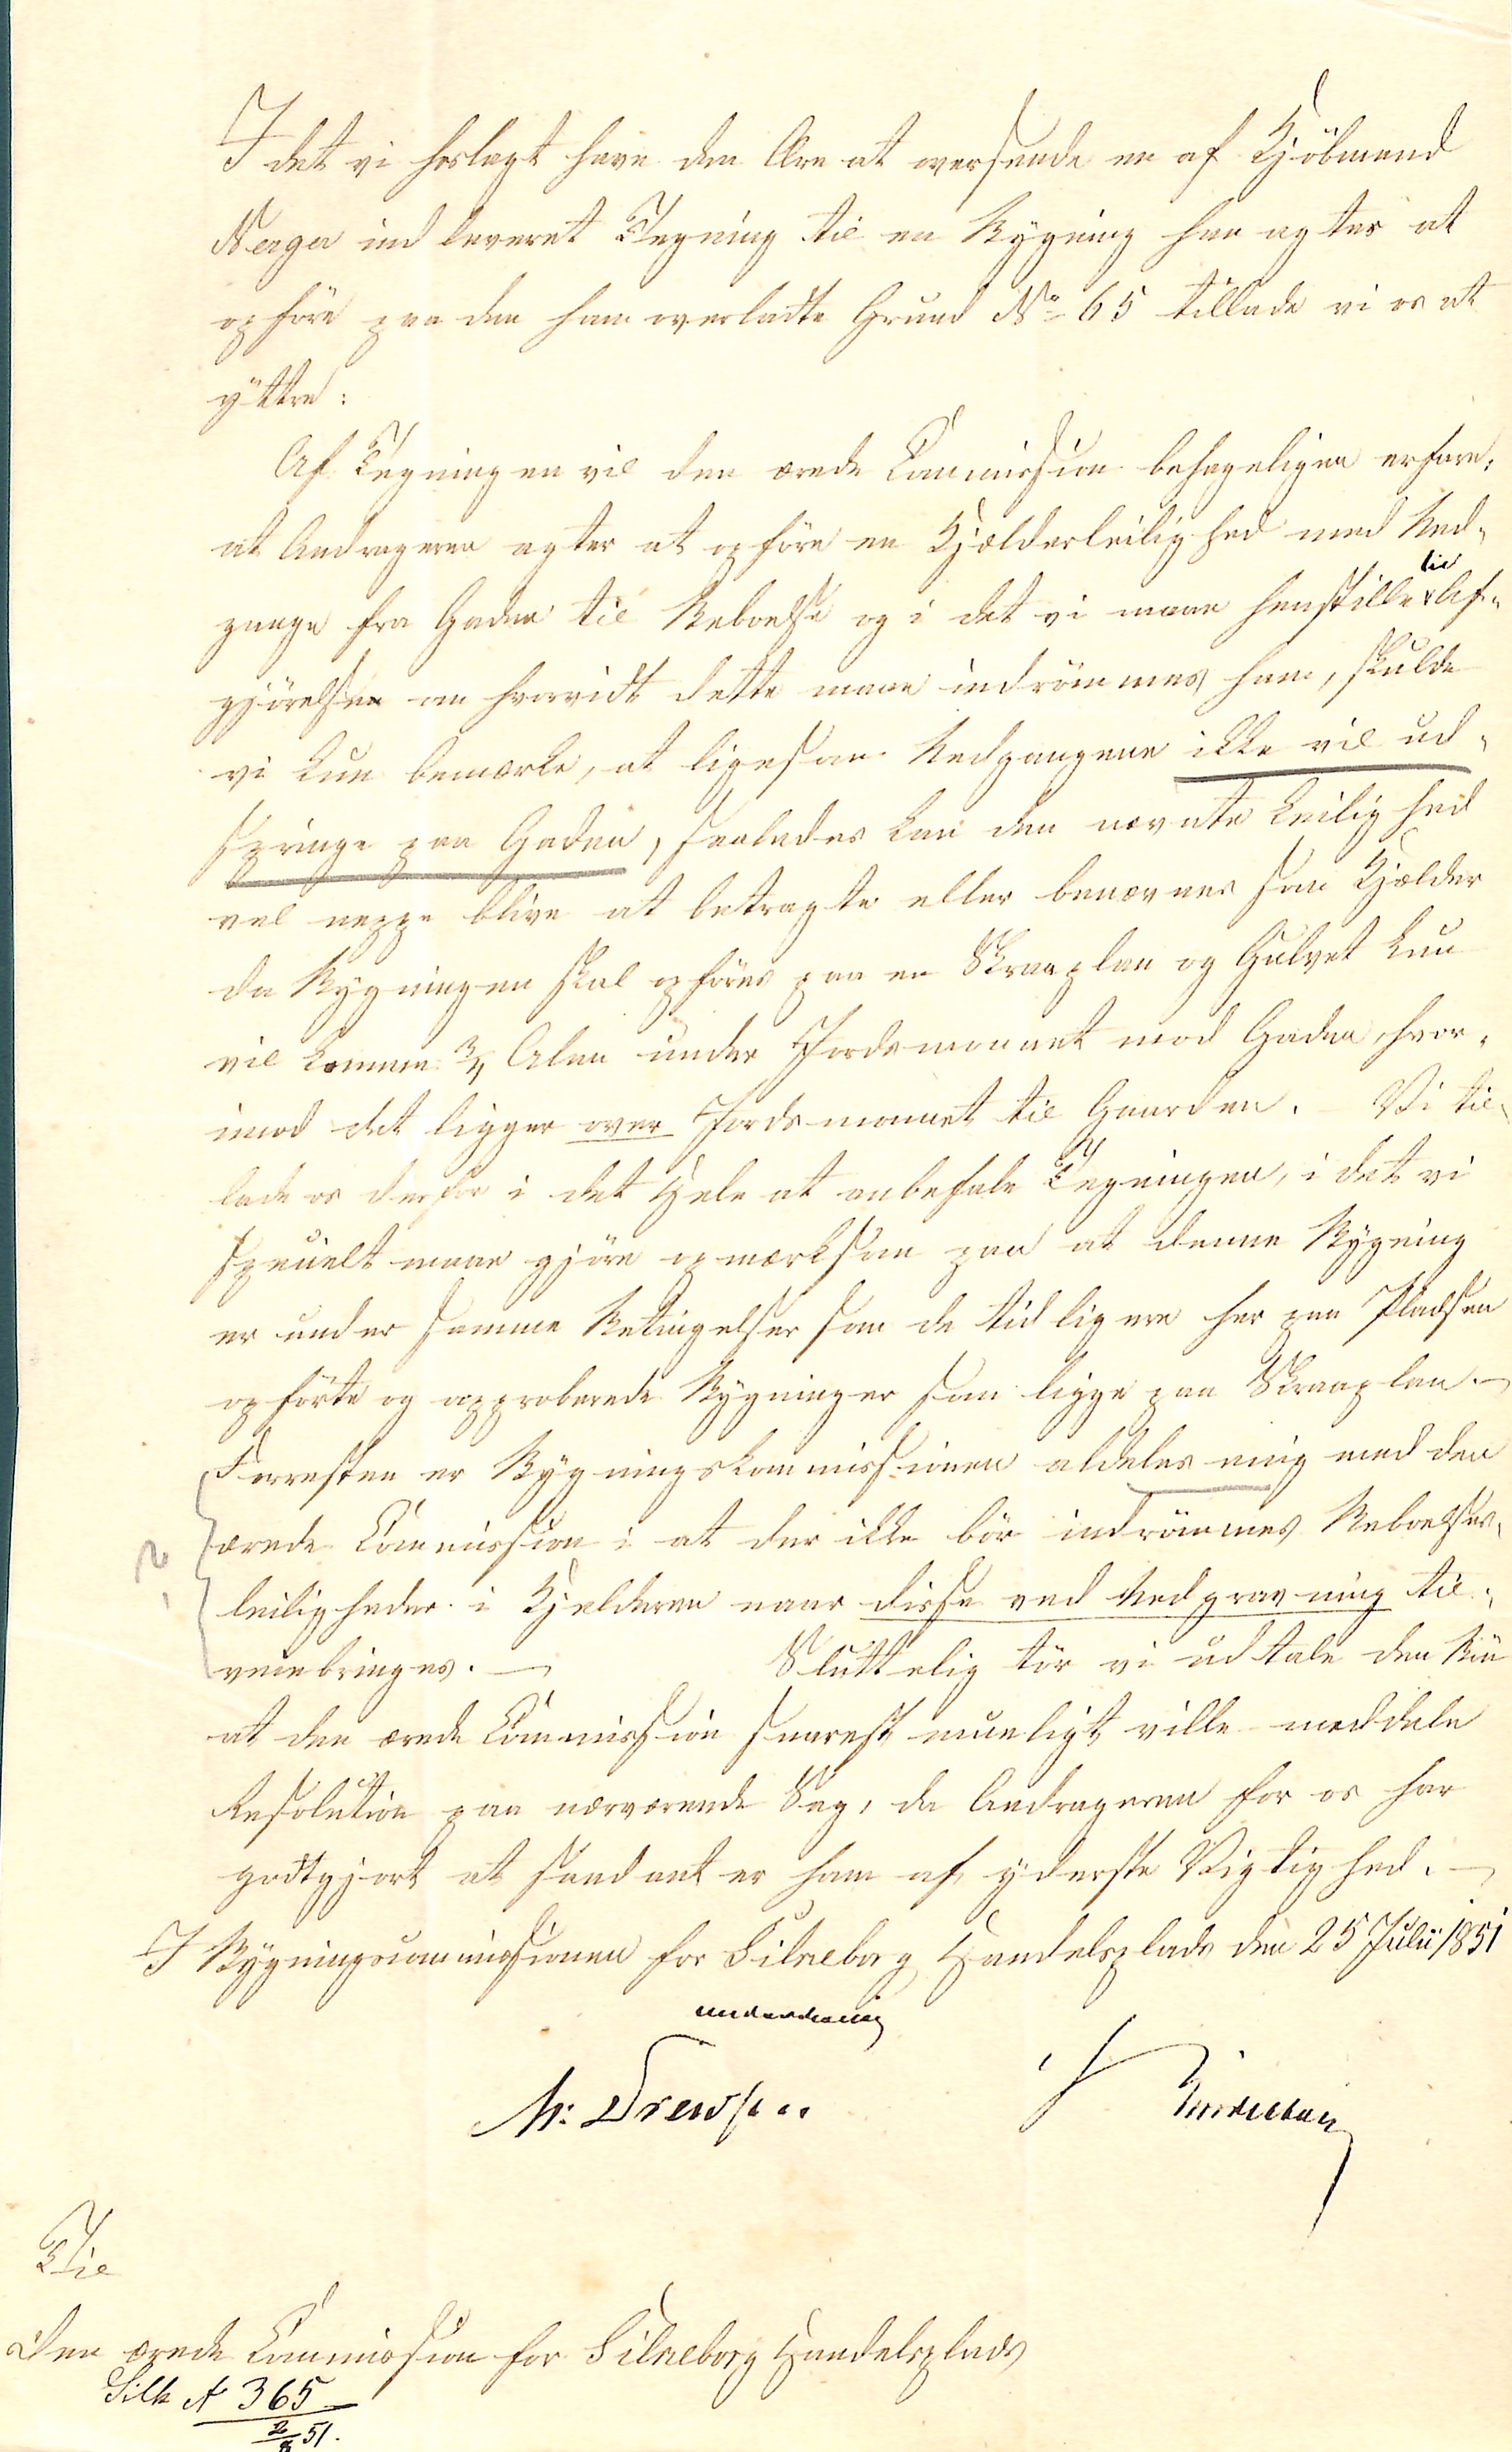 I det vi hoslagt have den Ære at oversende en af Kjöbmand
Berger ind leveret Tegning til en Bygning han agter at
opföre paa den ham overladte Grund No 65 tillade vi os at
yttre:
Af Tegningen vil den ærede Commission behageligen erfare,
at Andrageren agter at opföre en Kjælderleilighed med Ned-
gange fra Gaden til Beboelse og i det vi maae henstille til Af-
gjörelsen om hvorvidt dette maae indrömmes ham, skulde
vi kun bemærke, at ligesom Nedgangene ikke vil ud-
springe paa Gaden, saaledes kan den nævnte Leilighed
vel neppe blive at betragte eller benævnes som Kjælder
da Bygningen skal opföres paa en Skraaplan og Gulvet kun
vil komme 3/4 Alen under Jordsmonnet mod Gaden, hvor-
imod det ligger over Jordsmonnet til Gaarden. Vi til-
lade os derfor i det Hele at anbefale Tegningen, i det vi
specielt maae gjöre opmærksom paa at denne Bygning
er under samme Betingelser som de tidligere her paa Pladsen
opförte og approberede Bygninger som ligge paa Skraaplan. —
Forresten er Bygningskommissionen aldeles enig med den
ærede Commission i at der ikke bör indrömmes Beboelses-
leiligheder i Kjeldere naar disse ved Nedgravning til-
veiebringes. — Sluttelig tör vi udtale den Bön
at den ærede Commission snarest mueligt ville meddele
Resolution paa nærværende Sag, da Andrageren for os har
godtgjort at saadant er ham af yderste Vigtighed. —
I Bygningscommissionen for Silkeborg Handelsplads den 25 Julii 1851
underdanig
M: Drewsen
Til
Den ærede Commission for Silkeborg Handelsplads
Silk A 365
2/8 51.